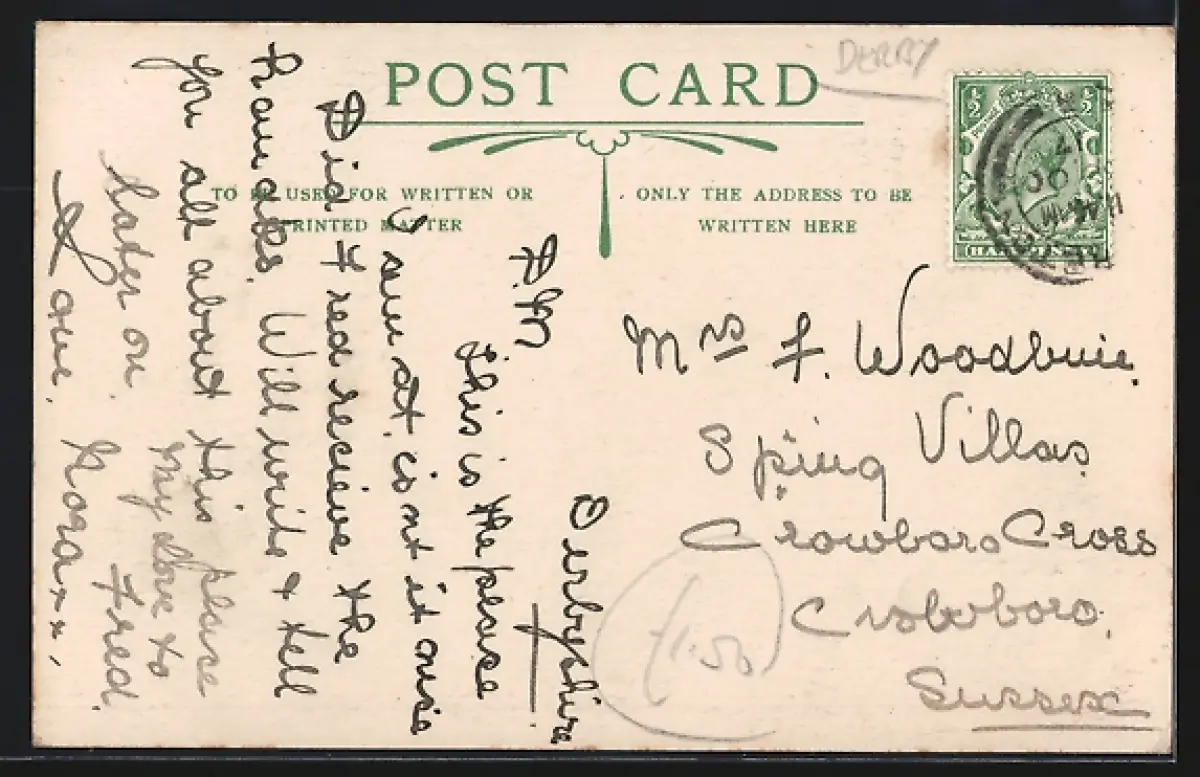 POST CARD
DERBY
TO BE USED FOR WRITTEN OR
PRINTED MATTER
ONLY THE ADDRESS TO BE
WRITTEN HERE
HALFPENNY
Mrs F. Woodbuie.
Spiing Villas
Crowboro Cross
Croboboro.
Sussex
1.50
Derbyshire
D.M
This is the place
I am at. is nt it nice
Did Fred recieve the
Hankks. Will write & tell
you all about this place
later on. My Love to
& one. Fred.
Nora xx,